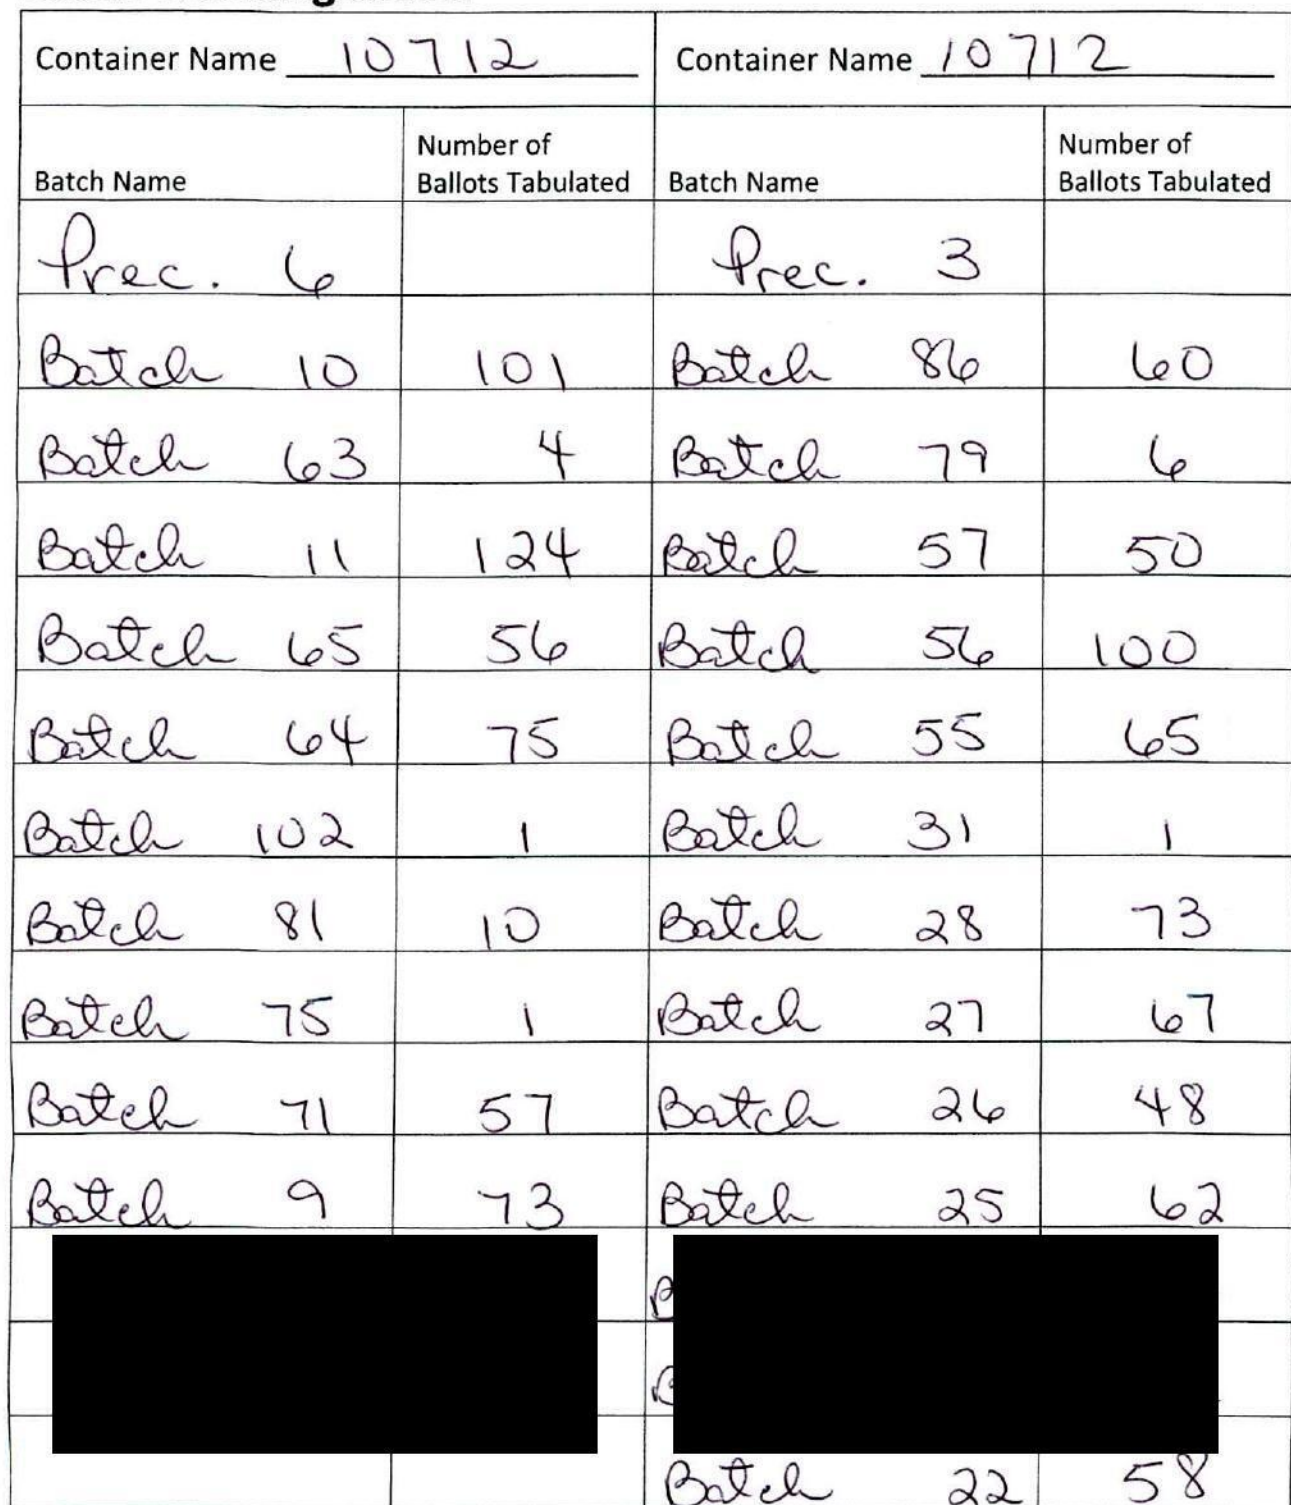 Container Name 10712 Container Name 10712
Number of Number of
Batch Name Ballots Tabulated Batch Name Ballots Tabulated
Prec. 6 Prec. 3
Batch 10 101 Batch 86 60
Batch 63 4 Batch 79 6
Batch 11 124 Batch 57 50
Batch 65 56 Batch 56 100
Batch 64 75 Batch 55 65
Batch 102 1 Batch 31 1
Batch 81 10 Batch 28 73
Batch 75 1 Batch 27 67
Batch 71 57 Batch 26 48
Batch 9 73 Batch 25 62
Batch 22 58